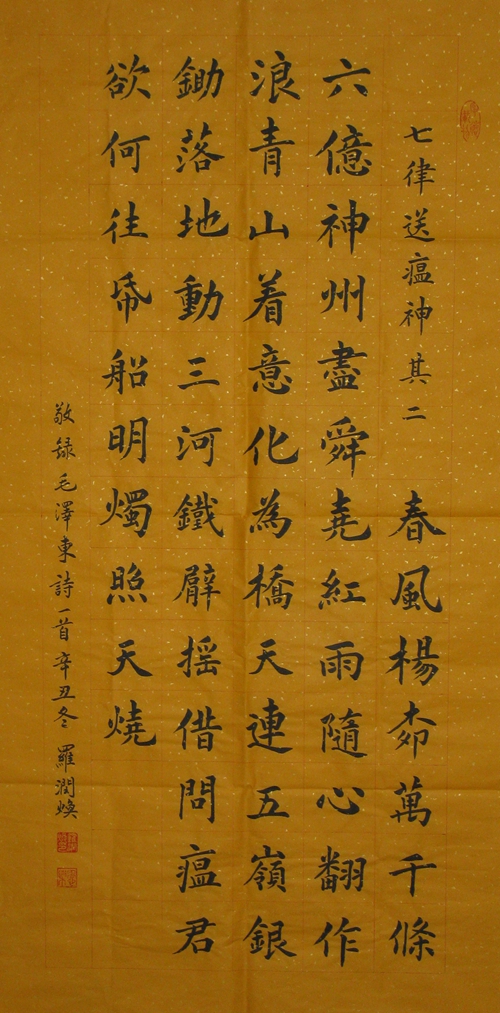 七律送瘟神其二 春風楊柳萬千條
六億神州盡舜堯紅雨隨心翻作
浪青山着意化為橋天連五嶺銀
鋤落地動三河鐵臂摇借問瘟君
欲何往帋船明燭照天燒
敬録毛澤東詩一首辛丑冬 羅潤煥